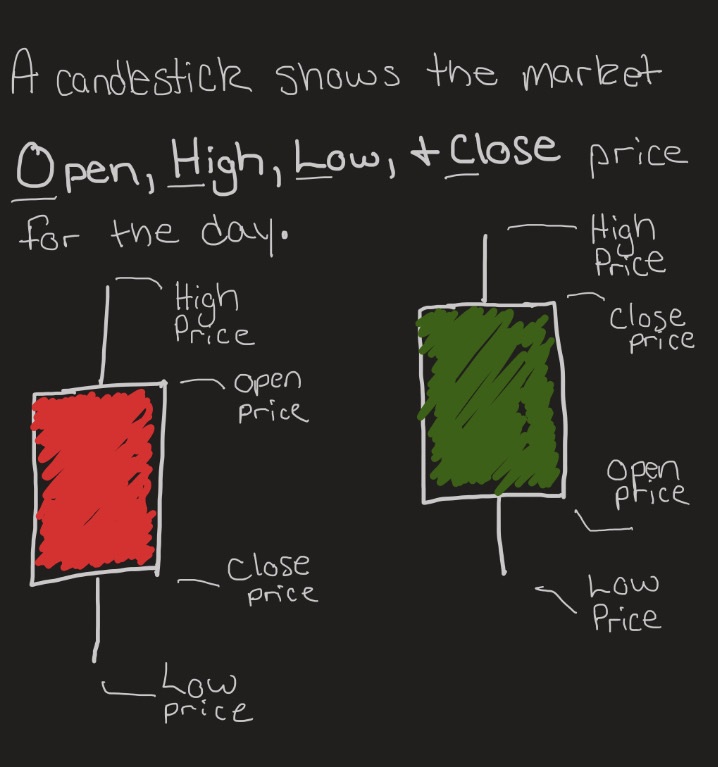 A candlestick shows the market
Open, High, Low, + Close price
for the day.
High
Price
Open
price
Close
price
Low
price
High
Price
Close
price
Open
price
Low
Price